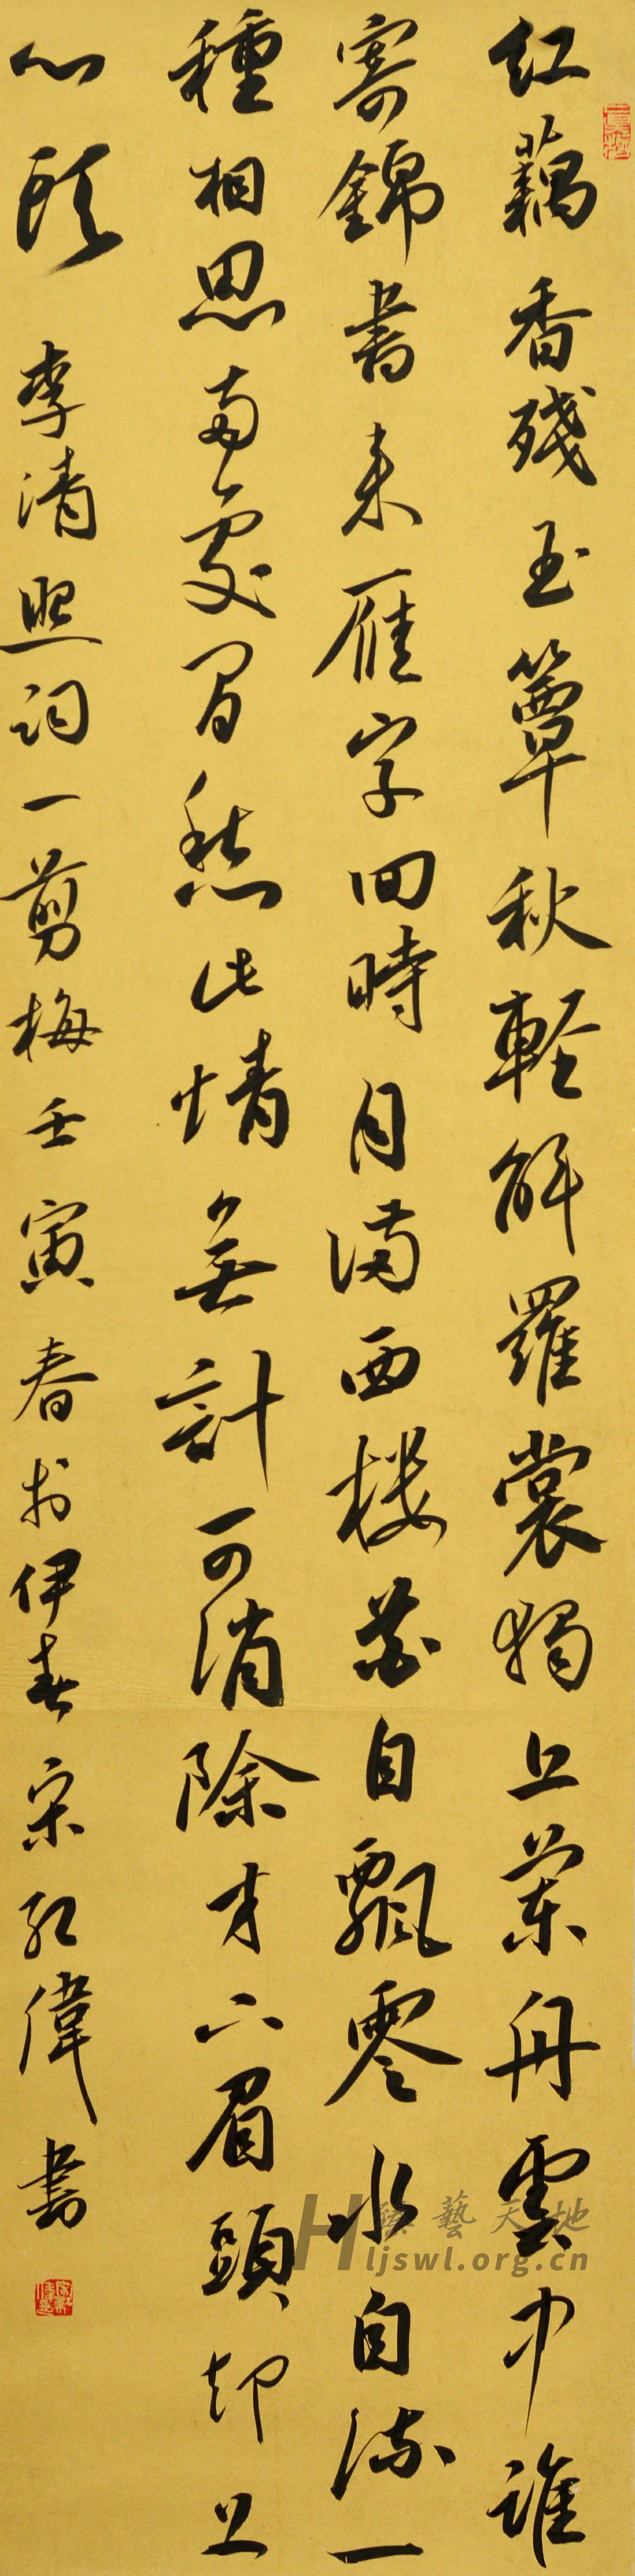 紅藕香殘玉簟秋輕解羅裳獨上蘭舟雲中誰
寄錦書来雁字回時月滿西樓花自飄零水自流一
種相思兩處閒愁此情無計可消除才下眉頭却上
心頭 李清照詞一剪梅壬寅春於伊春宋紅偉書
藝天地
Hljswl.org.cn